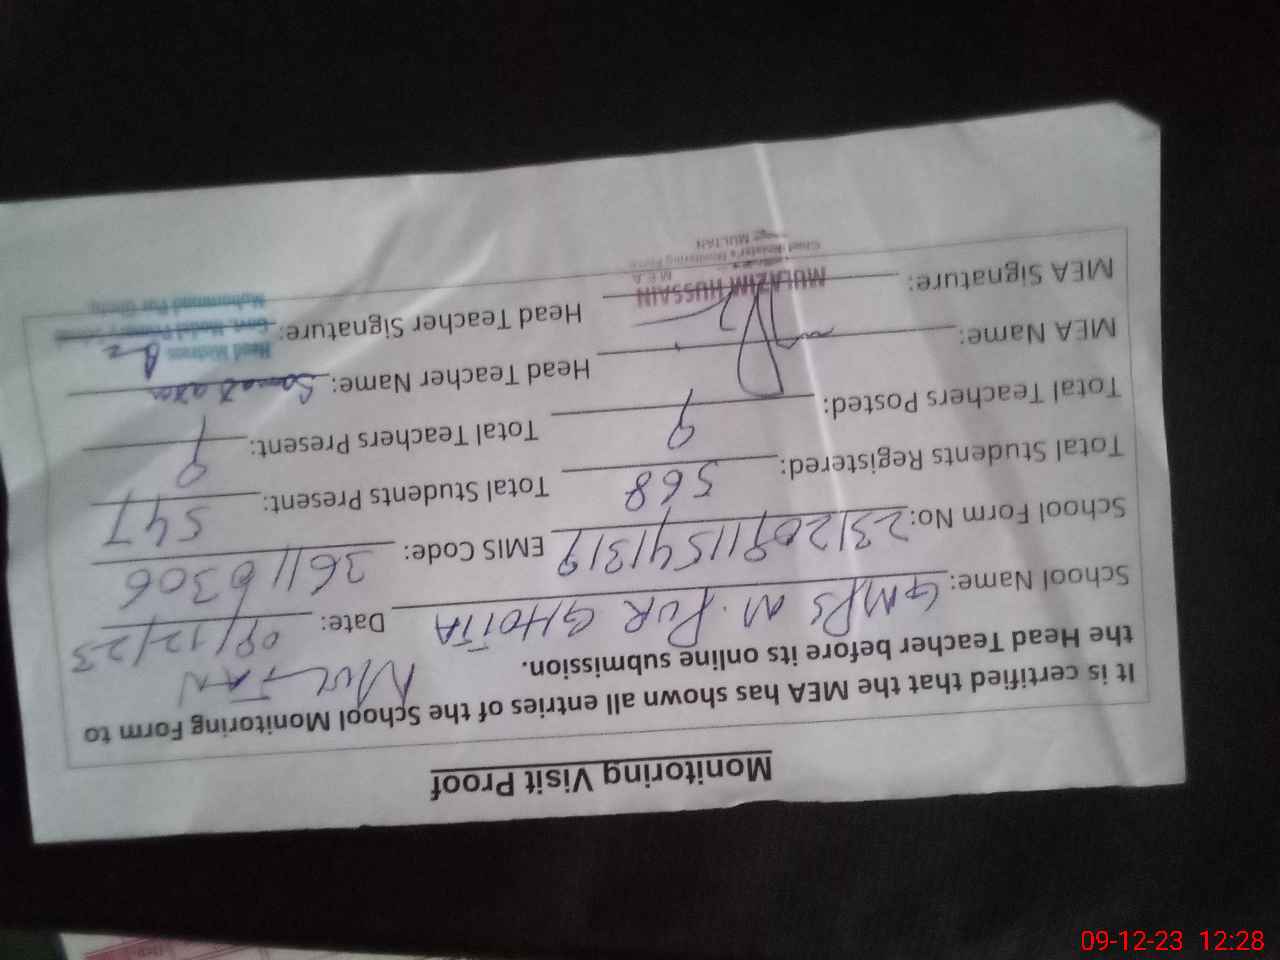 Monitoring Visit Proof
It is certified that the MEA has shown all entries of the School Monitoring Form to
the Head Teacher before its online submission.
MULTAN
School Name: GMPS M. PUR GHOTTA Date: 09/12/23
School Form No: 2312091154319 EMIS Code: 36110306
Total Students Registered: 568 Total Students Present: 547
Total Teachers Posted: 9 Total Teachers Present: 9
MEA Name: Head Teacher Name:
MEA Signature: Head Teacher Signature:
MULAZIM HUSSAIN
M.E.A
Chief Minister's Monitoring Force
MULTAN
Head Mistress
Govt. Model Primary School
Muhammad Pur Ghota
09-12-23 12:28